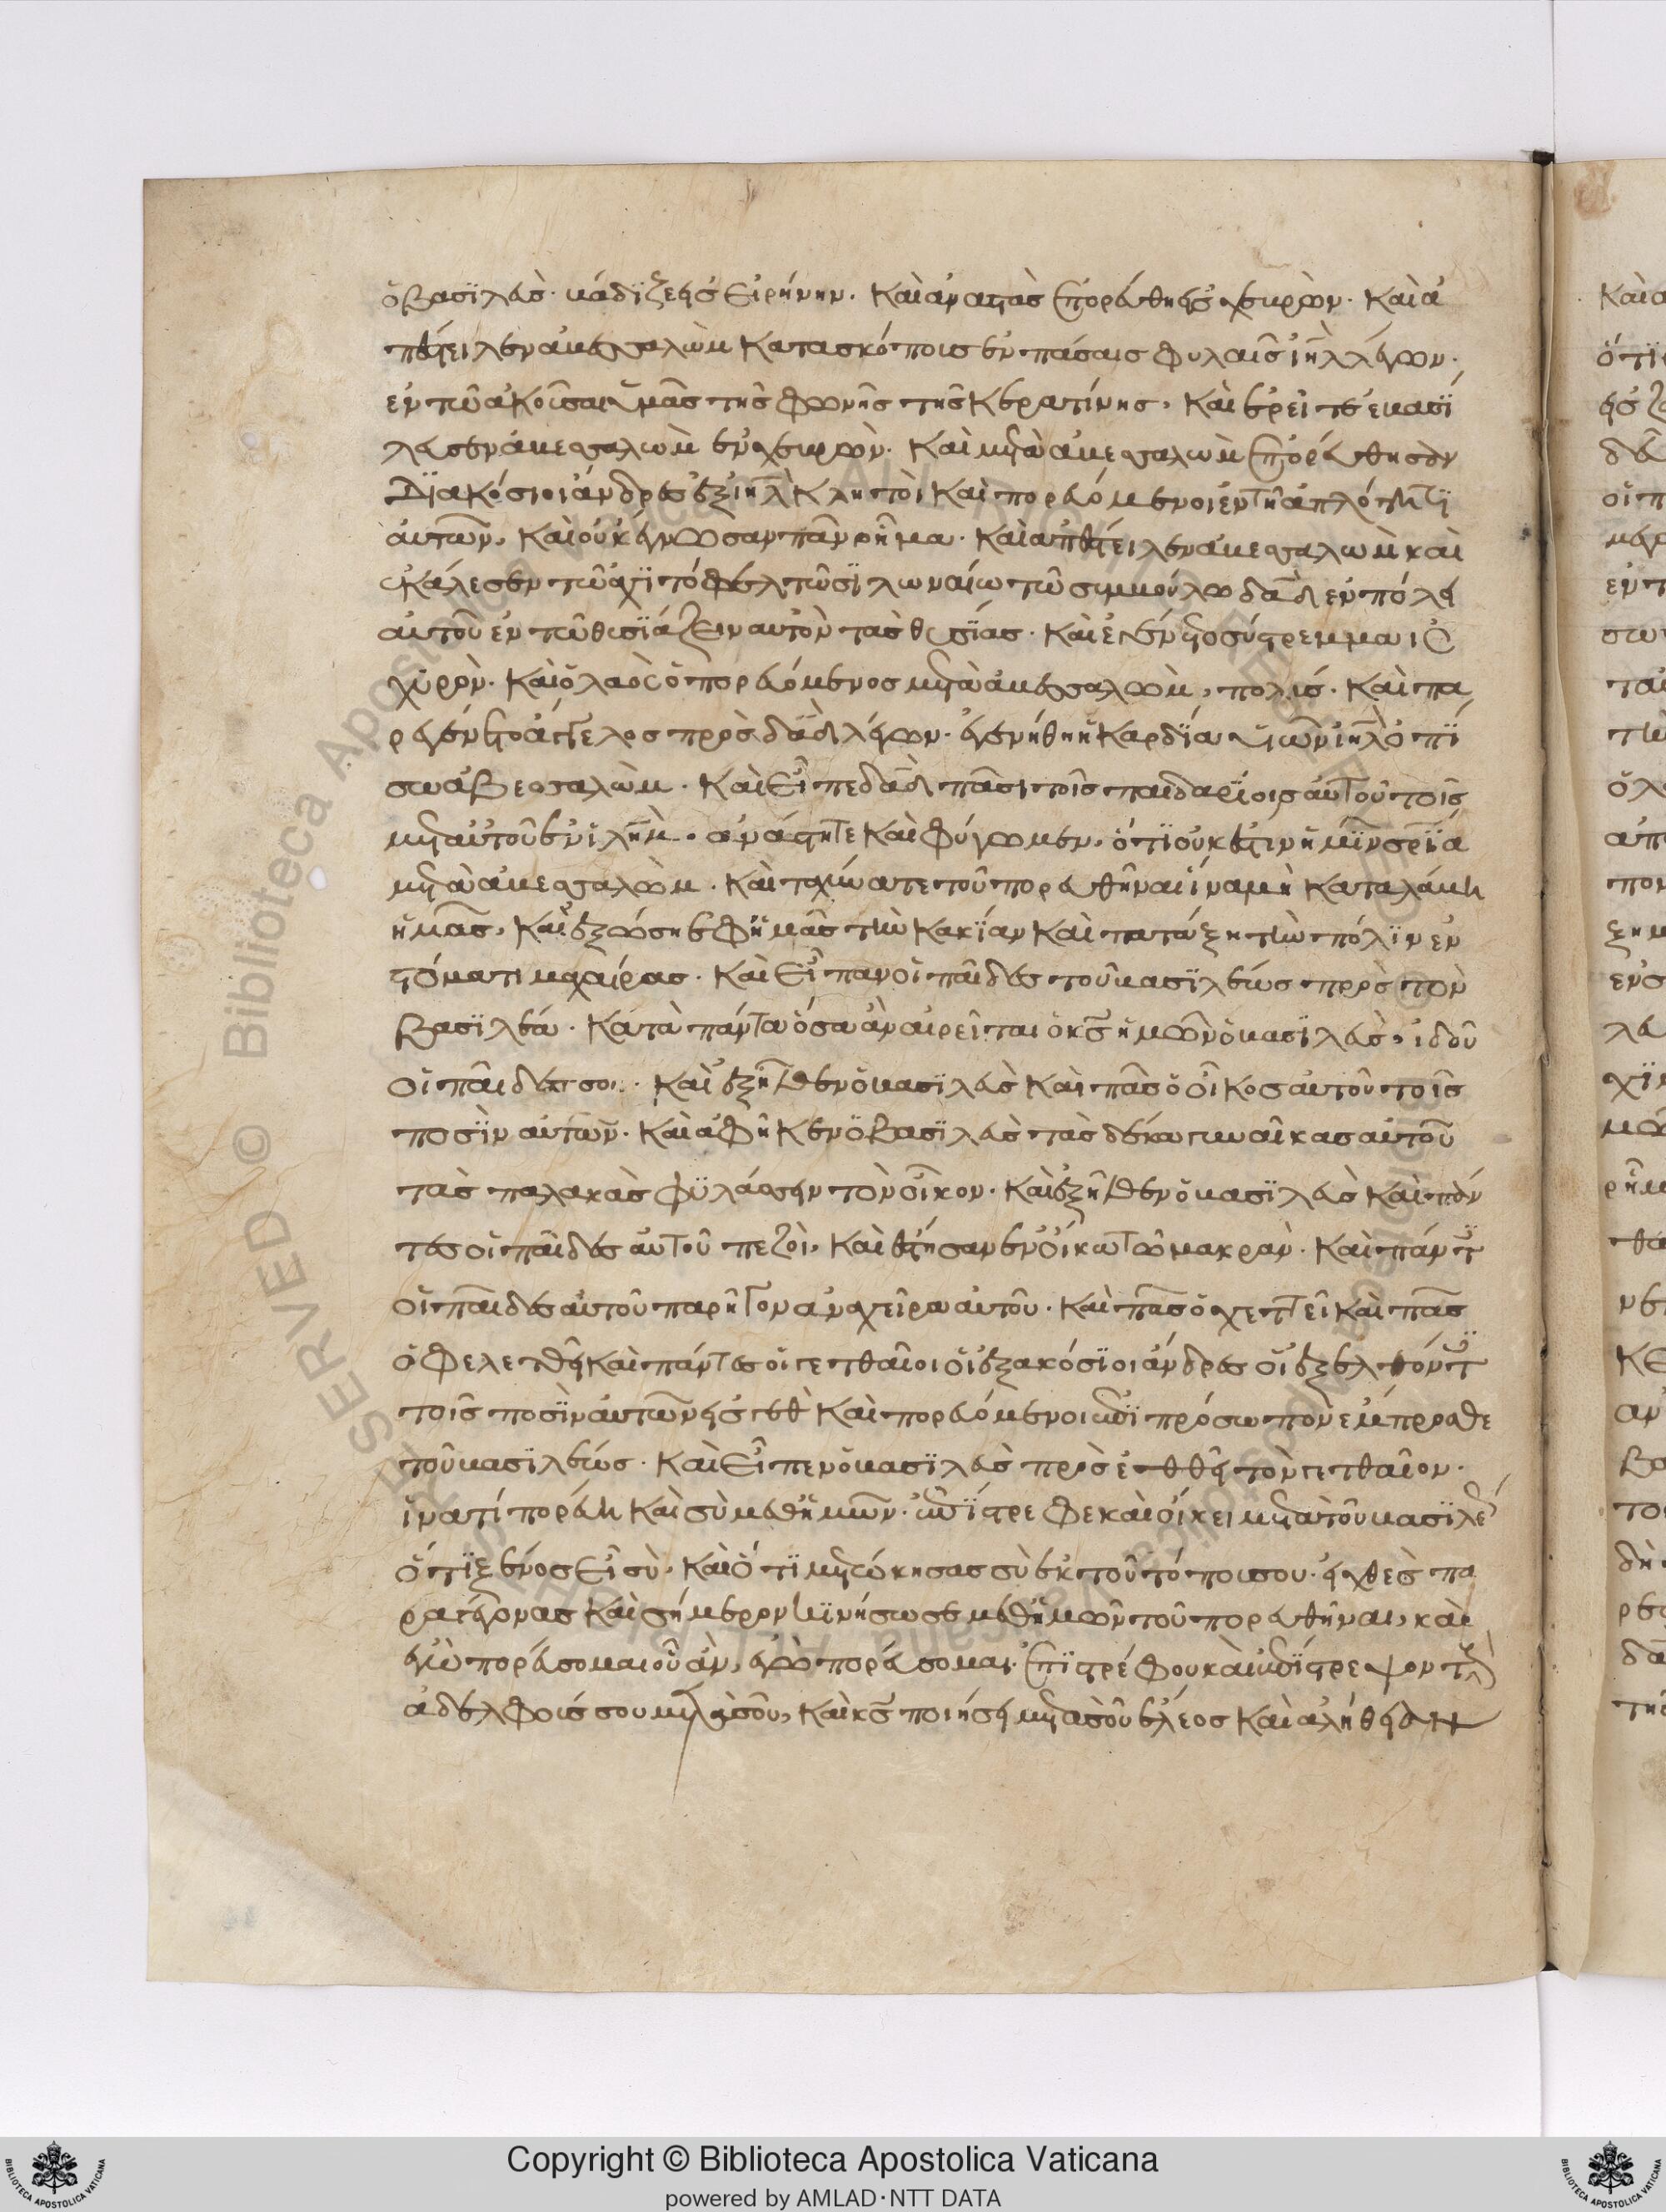 ὁ βασϊλεὺς· βάδϊζε εἰς εἰρήνην. καὶ ἀναστὰς ἐπορεύθη εἰς χευρών. καὶ ἀ
πέστειλεν ἀβεσσαλὼμ κατασκόπους ἐν πάσαις φυλαῖς ἰηλ λέγων·
ἐν τῶ ἀκοῦσαι ὑμᾶς τῆς φωνῆς τῆς κερατίνης, καὶ ἐρεῖτε βεβασί
λευσεν ἀβεσσαλωμ ἐν χευρών. καὶ μετὰ ἀβεσσαλωμ ἐπορεύθησαν
διακόσιοι ἄνδρες ἐξ ιηλ κλητοὶ καὶ πορευόμενοι ἐν τῆ ἁπλότητϊ
αὐτῶν, καὶ οὐκ ἔγνωσαν πᾶν ρῆμα. καὶ ἀπέστειλεν ἀβεσσαλωμ καὶ
ἐκάλεσεν τῶ ἀχϊτόφελ τῶ σϊλωναίω τῶ συμβούλω δαδ ἐν πόλει
αὐτοῦ ἐν τῶ θυσϊάζειν αὐτὸν τὰς θυσΐας. καὶ ἐγένετο σύστρεμμα ισ
χυρὸν. καὶ ὁ λαὸς ὁ πορευόμενος μετὰ ἀβεσσαλώμ, πολύς. καὶ πα
ρεγένετο ἄγγελος πρὸς δαδ λέγων. ἐγενήθη ἡ καρδΐα υἱῶν ιηλ ὀπϊ
σω ἀβεσσαλώμ. καὶ εἶπε δαδ πᾶσι τοῖς παιδαρΐοις αὐτοῦ τοῖς
μετ αὐτοῦ ἐν ἰλημ. ἀνάστητε καὶ φύγωμεν, ὅτϊ οὐκ ἔστιν ἡμῖν σρΐα
μετὰ ἀβεσσαλώμ. καὶ ταχύνατε τοῦ πορευθῆναι ἵνα μὴ καταλάβη
ἡμᾶς, καὶ ἐξώση ἐφ ἡμᾶς τὴν κακΐαν καὶ πατάξη τὴν πόλϊν ἐν
στόματι μαχαίρας. καὶ εἶπαν οἱ παῖδες τοῦ βασϊλέως πρὸς τὸν
βασϊλέα. κατὰ πάντα ὅσα ἂν αἱρεῖται ὁ κς ἡμῶν ὁ βασϊλεὺς, ἰδοῦ
οἱ παῖδες σου. καὶ ἐξῆλθεν ὁ βασϊλεὺς καὶ πᾶς ὁ οἶκος αὐτοῦ τοῖς
ποσὶν αὐτῶν. καὶ ἀφῆκεν ὁ βασϊλεὺς τὰς δέκα γυναῖκας αὐτοῦ
τὰς παλακὰς φϋλάσσειν τὸν οἶκον. καὶ ἐξῆλθεν ὁ βασϊλεὺς καὶ πάν
τες οἱ παῖδες αὐτοῦ πεζοὶ, καὶ ἔστησαν ἐν οἴκω τῶ μακρὰν. καὶ πάντ
οἱ παῖδες αὐτοῦ παρῆγον ἀνὰ χεῖρα αὐτοῦ. καὶ πᾶς ὁ χεττεὶ καὶ πᾶς
ὁ φελετθεὶ καὶ πάντες οἱ γετθαῖοι οἱ ἑξακόσϊοι ἄνδρες οἱ ἐξελθόντ
τοῖς ποσὶν αὐτῶν εἰς γεθ καὶ πορευόμενοι ἐπῒ πρόσωπον ἔμπροσθε
τοῦ βασϊλέως. καὶ εἶπεν ὁ βασϊλεὺς πρὸς ἐθθεὶ τὸν γετθαῖον.
ἵνα τί πορεύη καὶ σὺ μεθ ἡμῶν. ἐπΐστρεφε καὶ οἴκει μετὰ τοῦ βασϊλέ
ὅτϊ ξένος εἶ σὺ, καὶ ὅτϊ μετώκησας σὺ ἐκ τοῦ τόπου σου. ἐχθὲς πα
ραγέγονας καὶ σήμερον κϊνήσω σε μεθ ἡμῶν τοῦ πορευθῆναι, καὶ
ἐγὼ πορεύσομαι οὗ ἂν, ἐγὼ πορεύσομαι. ἐπϊστρέφου καὶ ἐπΐστρεψον τοὺς
ἀδελφούς σου μετὰ σοῦ, καὶ κς ποιήσει μετὰ σοῦ ἔλεος καὶ ἀλήθειαν